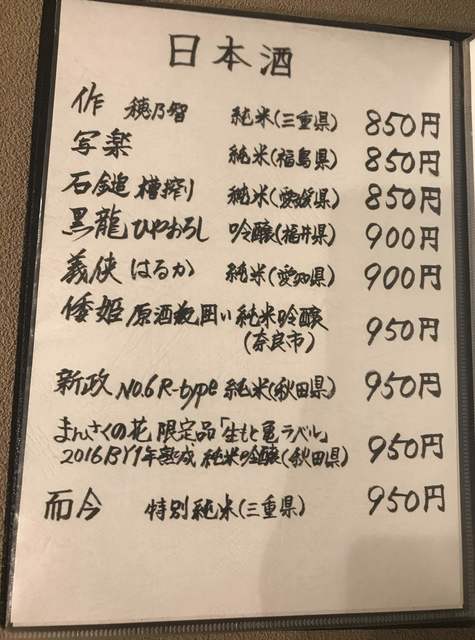 日本酒
作 穂乃智 純米(三重県) 850円
写楽 純米(福島県) 850円
石鎚 槽搾り 純米(愛媛県) 850円
黒龍 ひやおろし 吟醸(福井県) 900円
義侠 はるか 純米(愛知県) 900円
倭姫 原酒瓶囲い 純米吟醸 950円
(奈良市)
新政 No.6 R-type 純米(秋田県) 950円
まんさくの花 限定品「生もと亀ラベル」 950円
2016BY1年熟成 純米吟醸(秋田県)
而今 特別純米(三重県) 950円